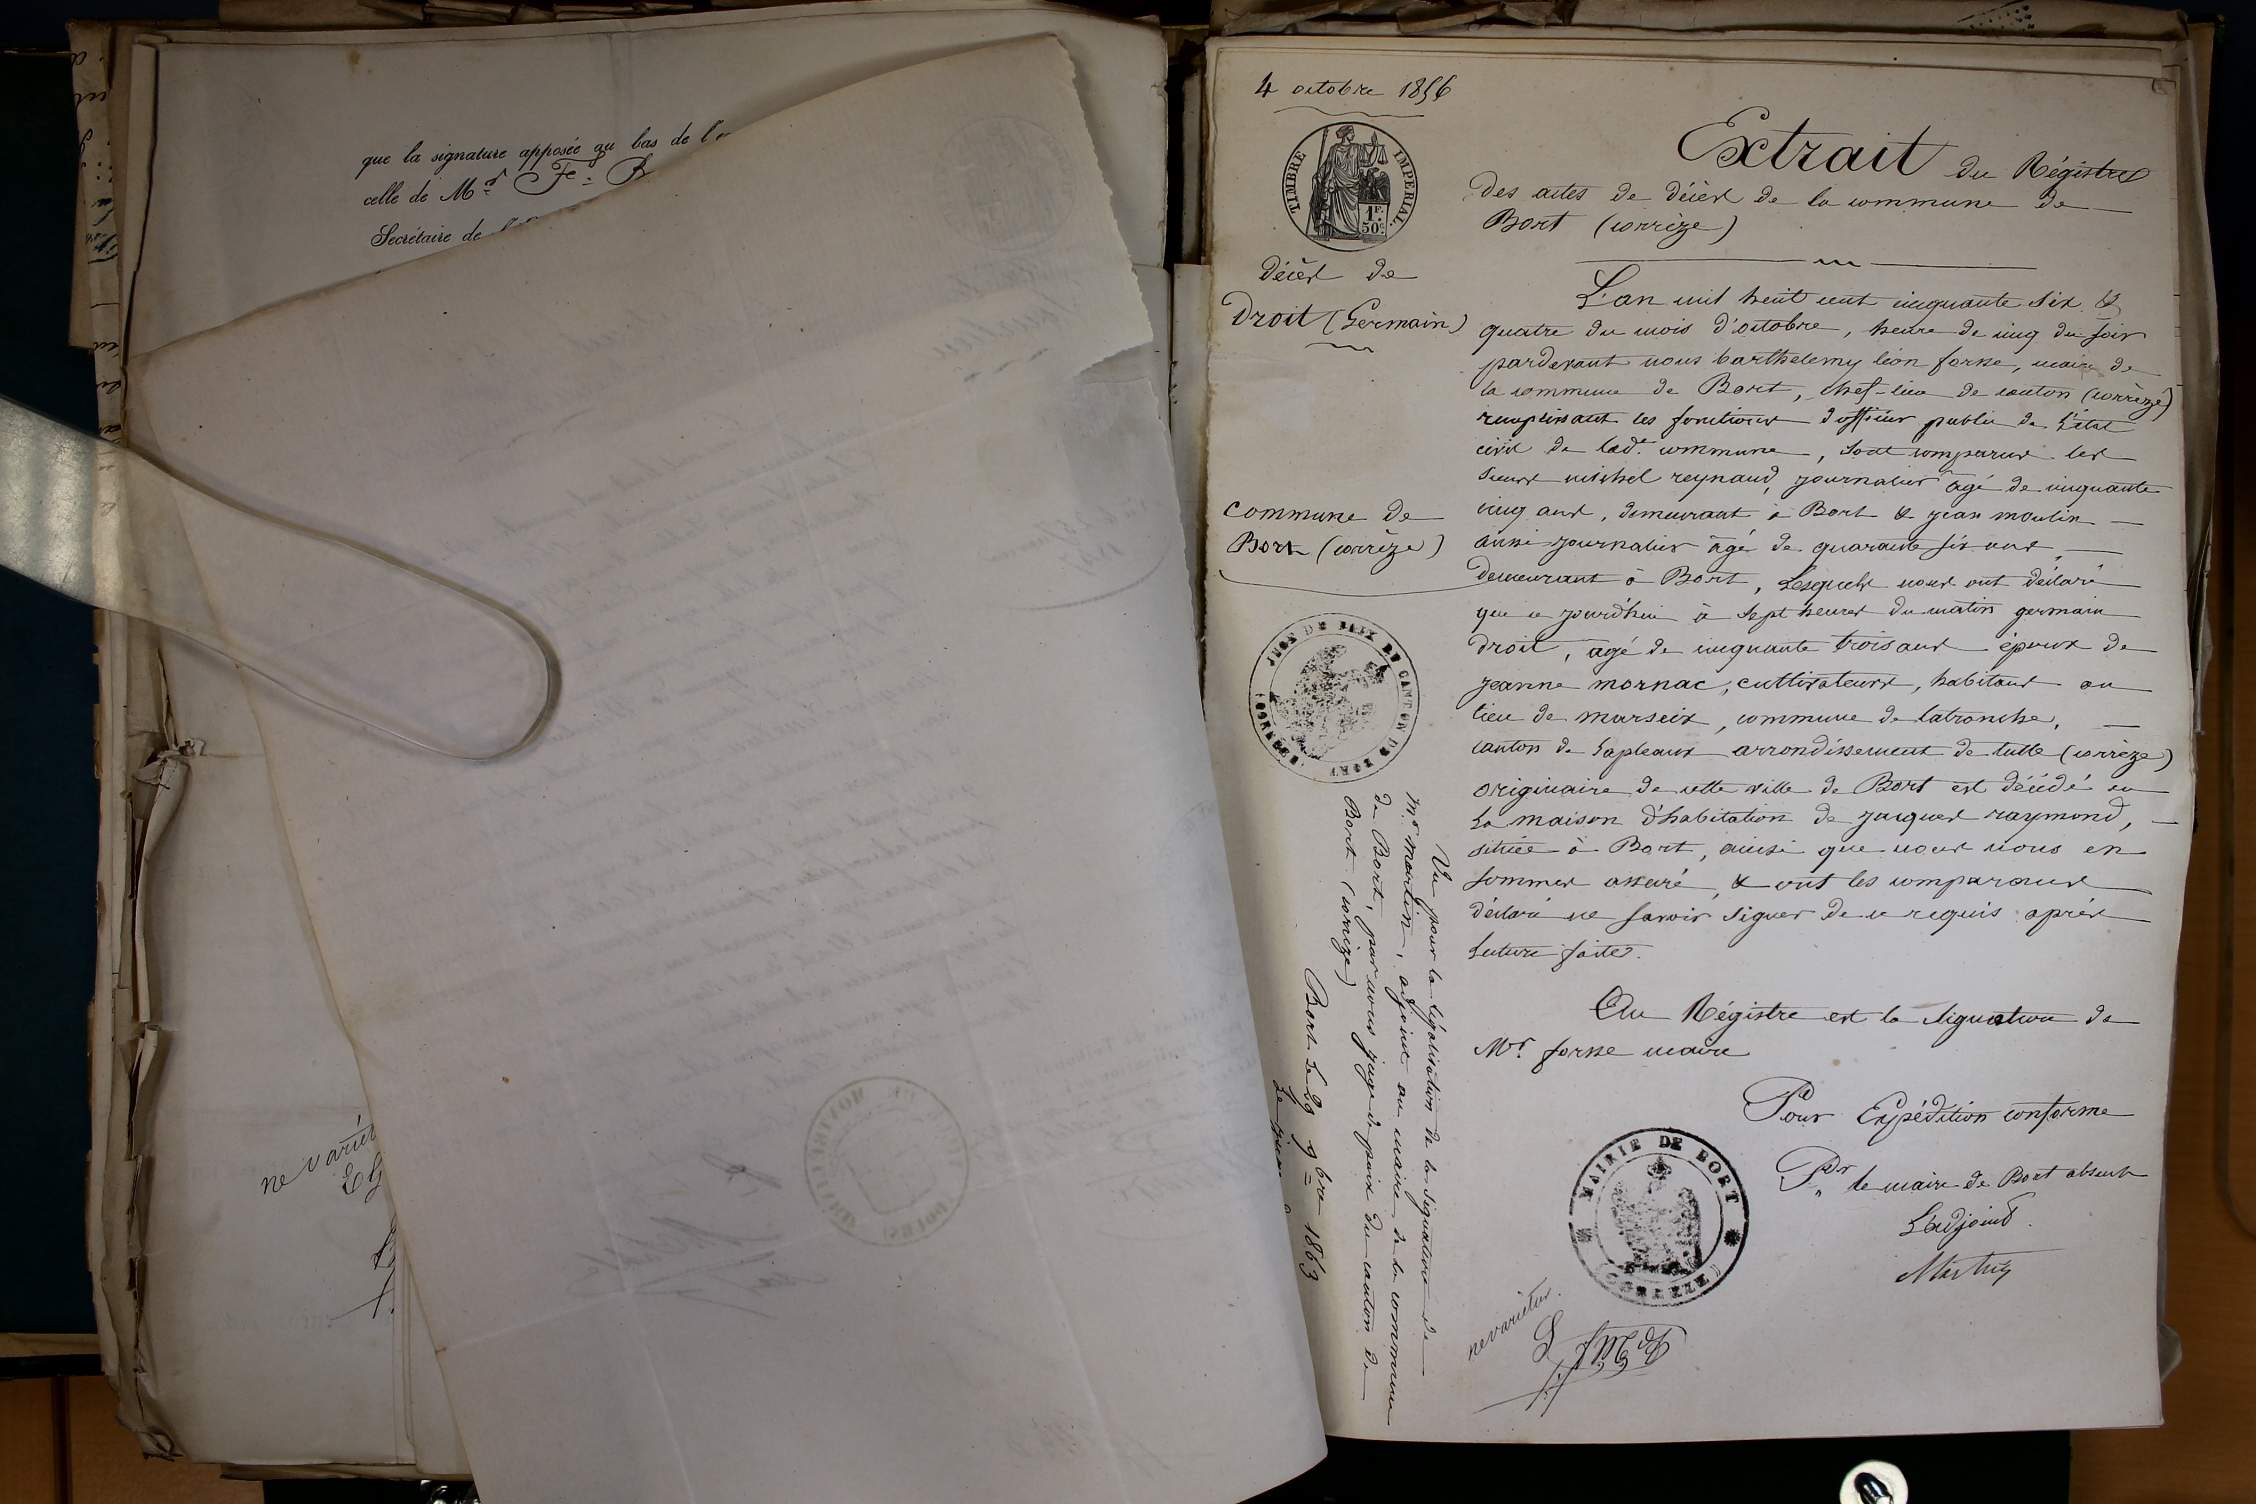 que la signature apposée au bas de l'
celle de Mr Fd B
Secrétaire de
ne varietur
4 octobre 1856
TIMBRE IMPERIAL
1F.
50c
Décès de
Droit (Germain)
Commune de
Bort (corrèze)
JUGE DE PAIX DU CANTON DE BORT
(CORREZE)
Vu pour la législation de la signature de
Mr Martin, adjoint au maire de la commune
de Bort, par nous juge de paix du canton de
Bort (corrèze)
Bort le 29 9bre 1863
Le juge
Extrait du Régistre
des actes de décès de la commune de
Bort (corrèze)
L'an mil huit cent cinquante six &
quatre du mois d'octobre, heure de cinq du soir
pardevant nous barthelemy léon forsse, maire de
la commune de Bort, chef-lieu de canton (corrèze)
remplissant les fonctions d'officier public de l'état
civil de lade. commune, sont comparus les
sieurs michel reynaud, journalier âgé de cinquante
cinq ans, demeurant à Bort & jean moulin
aussi journalier âgé de quarante six ans,
demeurant à Bort, Lesquels nous ont déclaré
que ce jourd'hui à sept heures du matin germain
droit, agé de cinquante trois ans époux de
jeanne mornac, cultivateurs, habitans au
lieu de marseix, commune de latronche,
canton de Lapleaux arrondissement de tulle (corrèze)
originaire de cette ville de Bort est décédé en
la maison d'habitation de jacques raymond,
située à Bort, ainsi que nous nous en
sommes assuré, & ont les comparans
déclaré ne savoir signer de ce requis après
lecture faite.
Au Régistre est la signature de
Mr. forsse maire
Pour Expédition conforme
Pr le maire de Bort absent
L'adjoint
Martin
MAIRIE DE BORT
(CORREZE)
ne varietur.